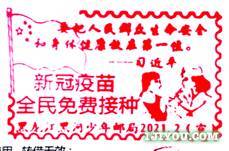 要把人民群众生命安全
和身体健康放在第一位。
——习近平
新冠疫苗
全民免费接种
黑龙江黑河少年邮局2021.2.
1JIYOU.COM